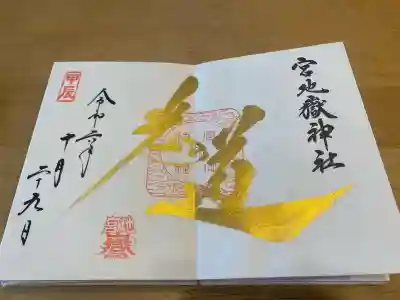 宮地嶽神社
光の道
甲辰
令和六年
十月
二十九日